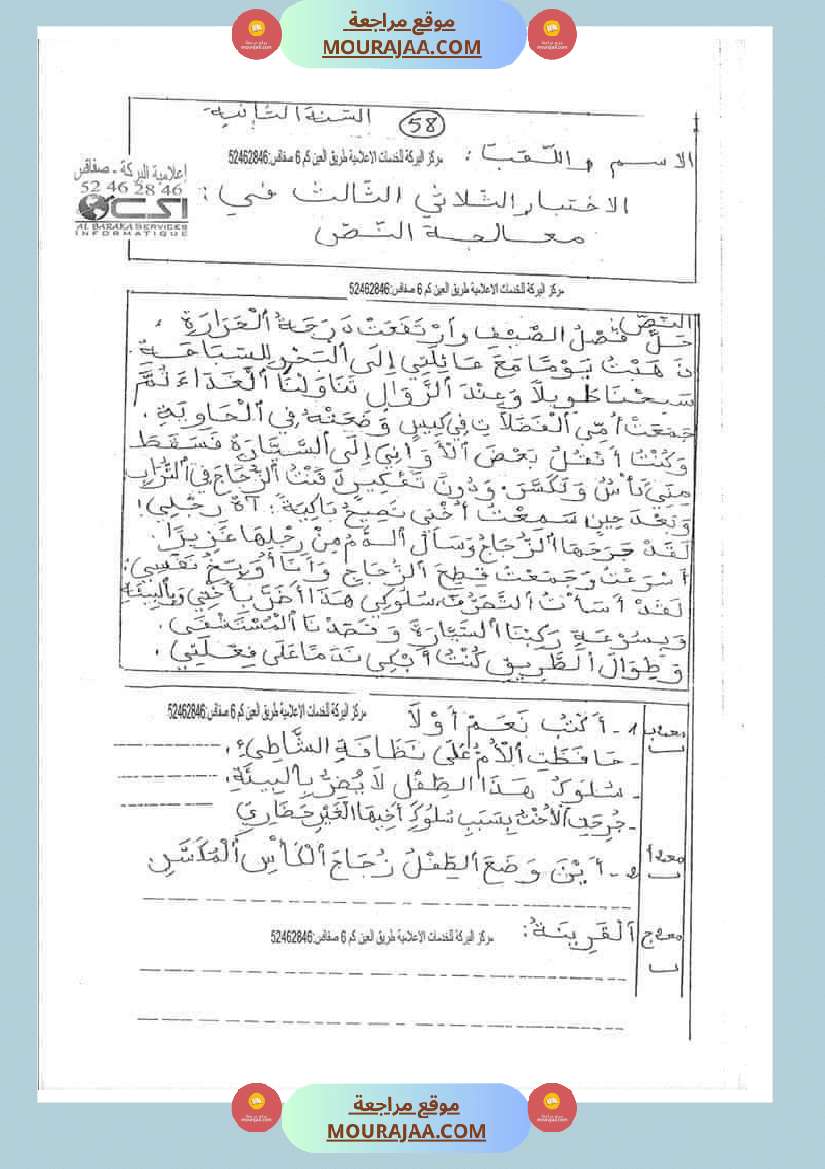 موقع مراجعة
MOURAJAA.COM
السنة الثانية
58
الاسم واللقب:
مركز البركة للخدمات الاعلامية طريق العين كم 6 صفاقس:52462846
إعلامية البركة - صفاقس
52 46 28 46
CSI
AL BARAKA SERVICES
INFORMATIQUE
الاختبار الثلاثي الثالث في:
معالجة النص
مركز البركة للخدمات الاعلامية طريق العين كم 6 صفاقس:52462846
النص:
حَلَّ فَصْلُ الصَّيْفِ وَارْتَفَعَتْ دَرَجَةُ الْحَرَارَةِ،
ذَهَبْتُ يَوْمًا مَعَ عَائِلَتِي إِلَى الْبَحْرِ لِلسِّبَاحَةِ
سَبَحْنَا طَوِيلًا وَعِنْدَ الزَّوَالِ تَنَاوَلْنَا الْغَدَاءَ ثُمَّ
جَمَعَتْ أُمِّي الْفَضَلَاتِ فِي كِيسٍ وَضَعَتْهُ فِي الْحَاوِيَةِ.
وَكُنْتُ أَنْقُلُ بَعْضَ الْأَوَانِي إِلَى السَّيَّارَةِ فَسَقَطَ
مِنِّي كَأْسٌ وَتَكَسَّرَ. وَدُونَ تَفْكِيرٍ دَفَنْتُ الزُّجَاجَ فِي التُّرَابِ
وَبَعْدَ حِينٍ سَمِعْتُ أُخْتِي تَصِيحُ بَاكِيَةً: آهْ رِجْلِي!
لَقَدْ جَرَحَهَا الزُّجَاجُ وَسَالَ الدَّمُ مِنْ رِجْلِهَا غَزِيرًا.
أَسْرَعْتُ وَجَمَعْتُ قِطَعَ الزُّجَاجِ وَأَنَا أُوَبِّخُ نَفْسِي:
لَقَدْ أَسَأْتُ التَّصَرُّفَ، سُلُوكِي هَذَا أَضَرَّ بِأُخْتِي وَبِالْبِيئَةِ
وَبِسُرْعَةٍ رَكِبْنَا السَّيَّارَةَ وَقَصَدْنَا الْمُسْتَشْفَى.
وَطِوَالَ الطَّرِيقِ كُنْتُ أَبْكِي نَدَمًا عَلَى فِعْلَتِي.
مركز البركة للخدمات الاعلامية طريق العين كم 6 صفاقس:52462846
1- أَكْتُبُ نَعَمْ أَوْ لَا
- حَافَظَتِ الْأُمُّ عَلَى نَظَافَةِ الشَّاطِئِ.
- سُلُوكُ هَذَا الطِّفْلِ لَا يُضِرُّ بِالْبِيئَةِ.
- جُرِحَتِ الْأُخْتُ بِسَبَبِ سُلُوكِ أَخِيهَا الْغَيْرِ حَضَارِيّ
2- أَيْنَ وَضَعَ الطِّفْلُ زُجَاجَ الْكَأْسِ الْمُكَسَّرِ
الْقَرِينَةُ:
مركز البركة للخدمات الاعلامية طريق العين كم 6 صفاقس:52462846
موقع مراجعة
MOURAJAA.COM